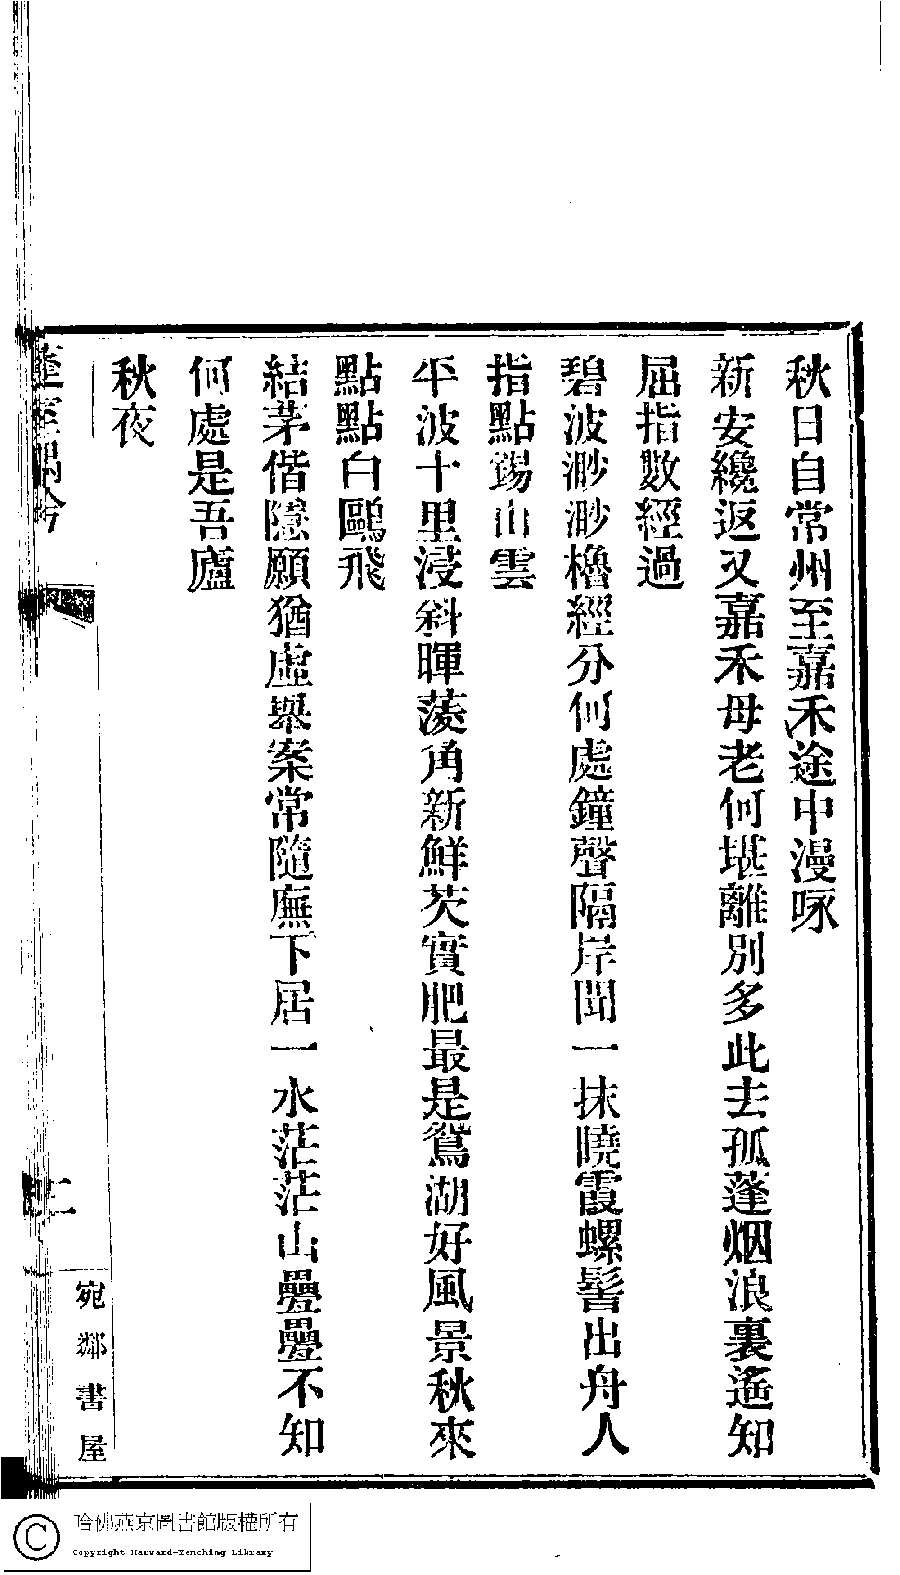 秋日自常州至嘉禾途中漫咏
新安纔返又嘉禾母老何堪離別多此去孤蓬烟浪裏遙知
屈指數經過
碧波渺渺櫓經分何處鐘聲隔岸聞一抹曉霞螺髻出舟人
指點錫山雲
平波十里浸斜暉蔆角新鮮芡實肥最是鴛湖好風景秋來
點點白鷗飛
結茅偕隱願猶虛舉案常隨廡下居一水茫茫山疊疊不知
何處是吾廬
秋夜
偶吟
二
宛鄰書屋
哈佛燕京圖書館版權所有
Copyright Harvard-Yenching Library